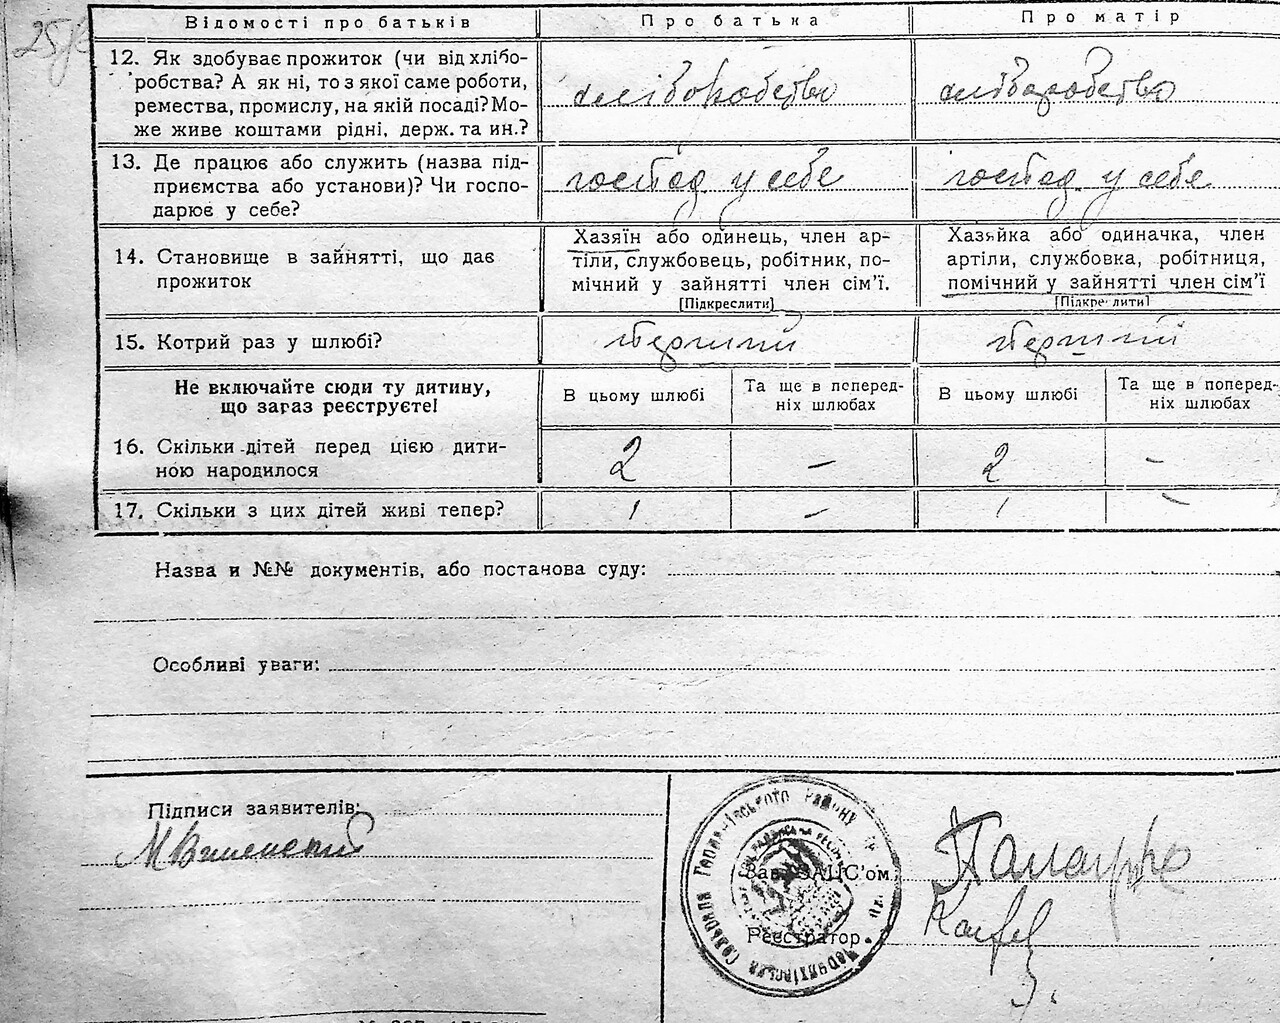 Відомості про батьків
Про батька
Про матір
12. Як здобуває прожиток (чи від хлібо-
робства? А як ні, то з якої саме роботи,
ремества, промислу, на якій посаді? Мо-
же живе коштами рідні, держ. та ин.?
хліборобство
хліборобство
13. Де працює або служить (назва під-
приємства або установи)? Чи госпо-
дарює у себе?
господ у себе
господ у себе
14. Становище в зайнятті, що дає
прожиток
Хазяїн або одинець, член ар-
тіли, службовець, робітник, по-
мічний у зайнятті член сім'ї.
[Підкреслити]
Хазяйка або одиначка, член
артіли, службовка, робітниця,
помічний у зайнятті член сім'ї
[Підкреслити]
15. Котрий раз у шлюбі?
перший
перший
Не включайте сюди ту дитину,
що зараз реєструєте!
В цьому шлюбі
Та ще в поперед-
ніх шлюбах
В цьому шлюбі
Та ще в поперед-
ніх шлюбах
16. Скільки дітей перед цією дити-
ною народилося
2
–
2
–
17. Скільки з цих дітей живі тепер?
1
–
1
–
Назва и №№ документів, або постанова суду:
Особливі уваги:
Підписи заявителів:
Зав. ЗАГС'ом
Реєстратор